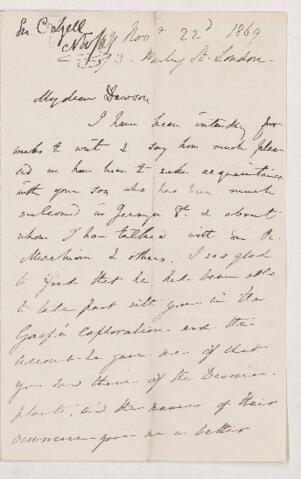 Sir C Lyell
Novr 22d 1869
73. Harley St. London
My dear Dawson
I have been intending for
weeks to write & say how much plea
sed we have been to make acquaintance
with your son who has been much
welcomed in & about
whom I have talked with Sir R.
Murchison & others. I was glad
to find that he had been able
to take part with you in the
Gaspé exploration and the
account he gave me of that
of the Devonian
plants, and the manner of their
occurrence gave me a better